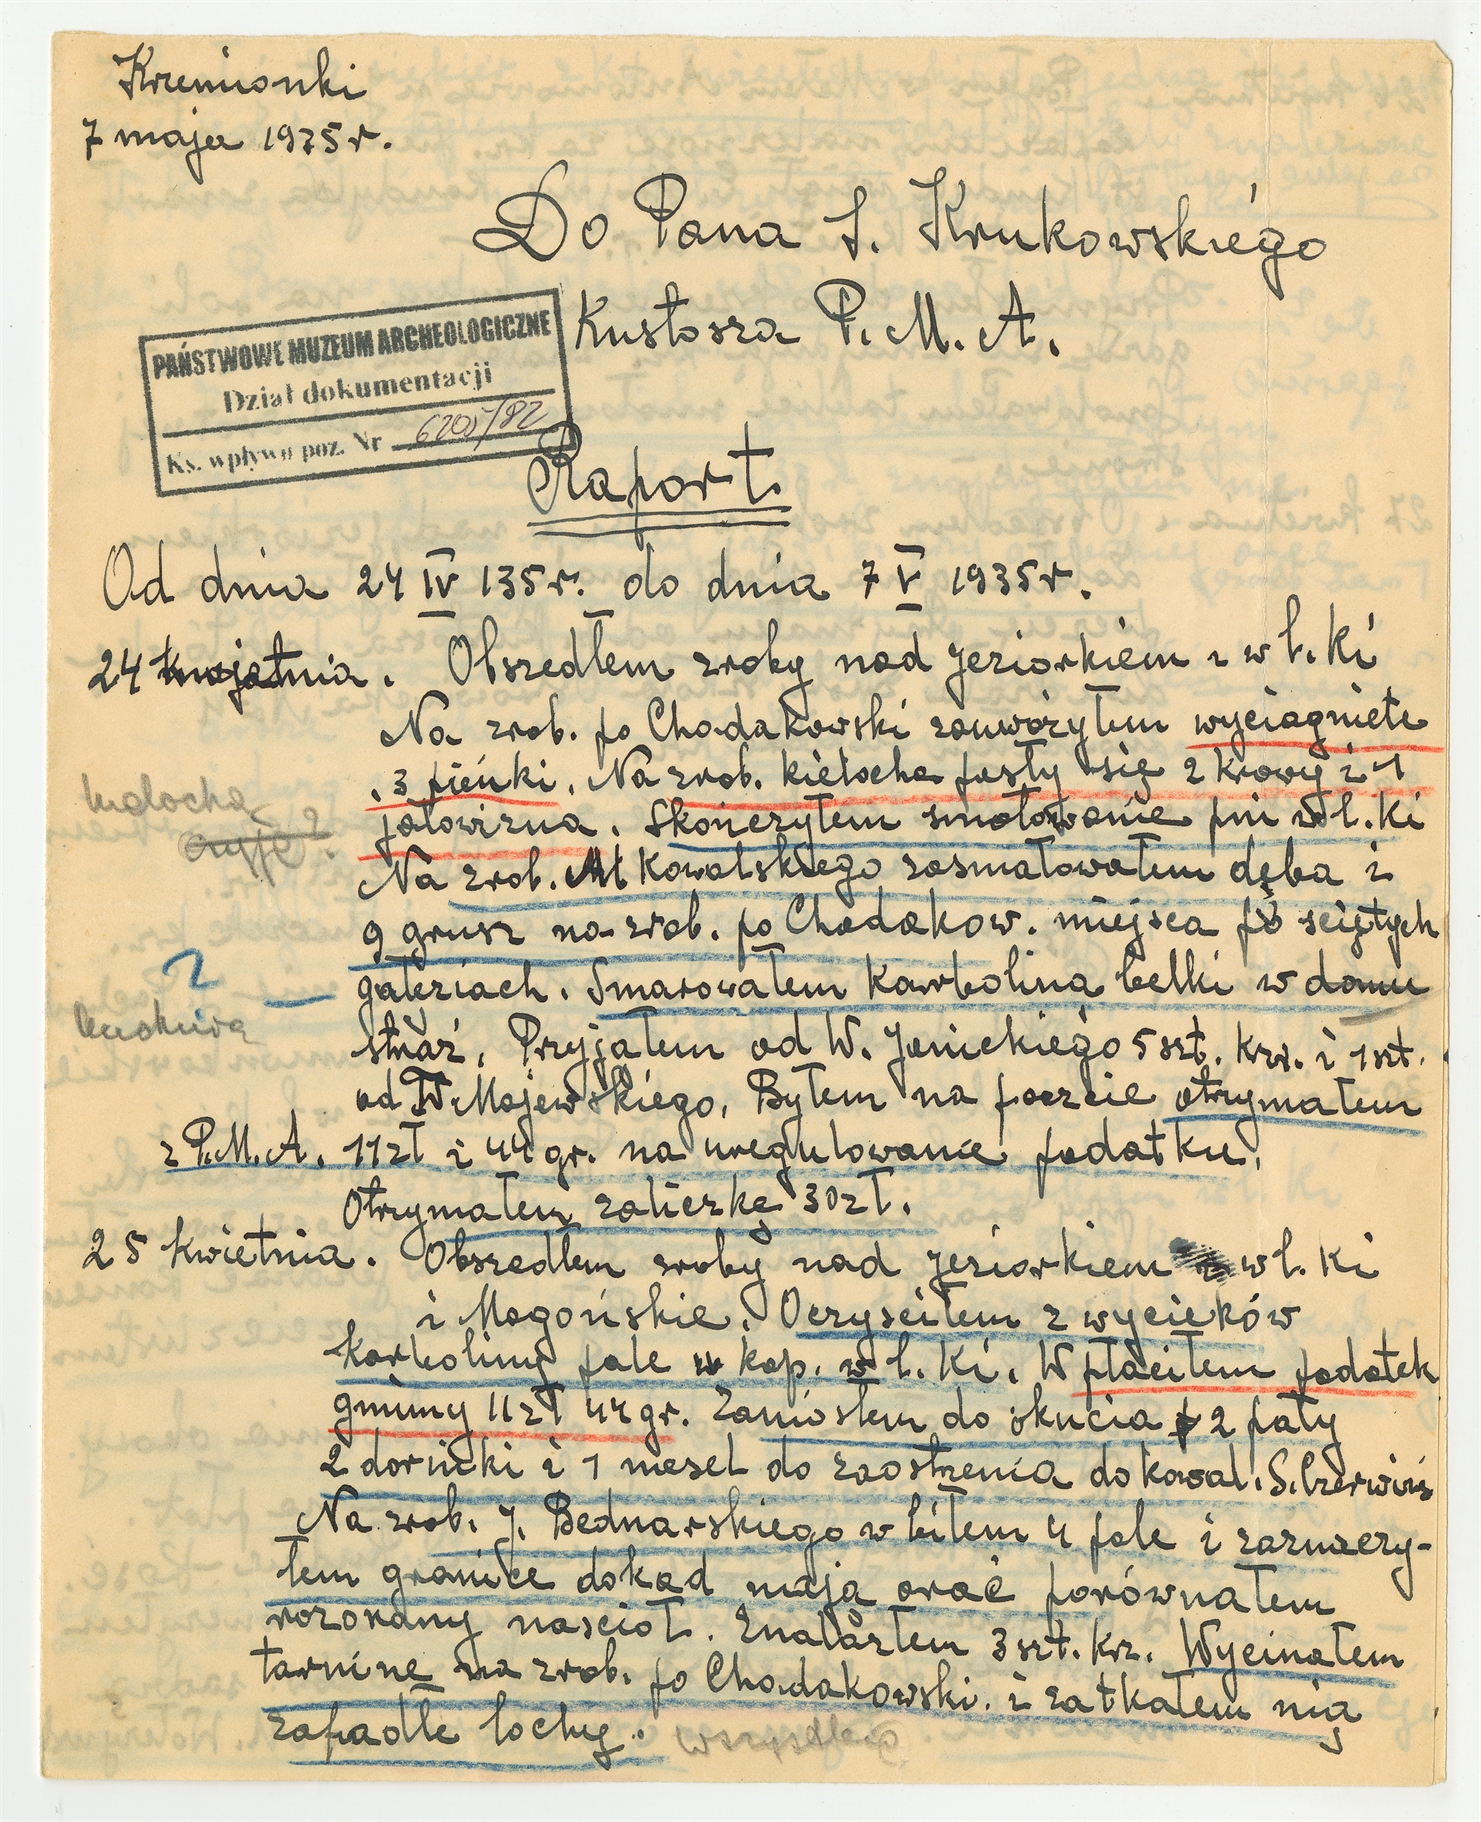 Krzemionki
7 maja 1975r.
Do Pana S. Krukowskiégo
Kustosza P. M. A.
PAŃSTWOWE MUZEUM ARCHEOLOGICZNE
Dział dokumentacji
Ks. wpływu poz. Nr 6205/82
Raport.
Od dnia 24 IV 135r. do dnia 7 V 1935r.
24 kwietnia. Obszedłem zroby nad Jeziorkiem i w l. Ki
Na zrob. po Chodakowski zauwożyłem wyciągniete
. 3 pieńki. Na zrob. kielocha pasły się 2 krowy i 1
malocha
jałowizna. Skończyłem smołowanie pni w l. Ki
Na zrob. Mł Kowalskiego zasmałowałem dęba i
9 grusz na zrob. po Chodakow. miejsca po sciętych
? — gałęziach. Smarowałem Karboliną belki w domu
straż. Przyjąłem od W. Janickiégo 5 szt. krz. i 1 szt.
od W. Majewskiégo. Byłem na poczcie otrzymałem
z P.M.A. 11 zł i 44 gr. na uregulowanie podatku.
Otrzymałem zaliczkę 30 zł.
25 kwietnia. Obszedłem zroby nad Jeziorkiem w l. Ki
i Magońskie. Oczyściłem z wycieków
karboliny pale w kop. w l. Ki. Wpłaciłem podatek
gminny 11 zł 44 gr. Zaniosłem do okucia 2 pały
2 dorniki i 1 mesel do zaostrzenia do kowal. S. Czerwińs
Na zrob. J. Bednarskiego wbiłem 4 pale i zaznaczy-
łem granice dokąd mają orać porównałem
rozorany nascioł. Znalazłem 3 szt. krz. Wycinałem
tarnine na zrob. po Chodakowski. i zatkałem nią
zapadłe lochy.